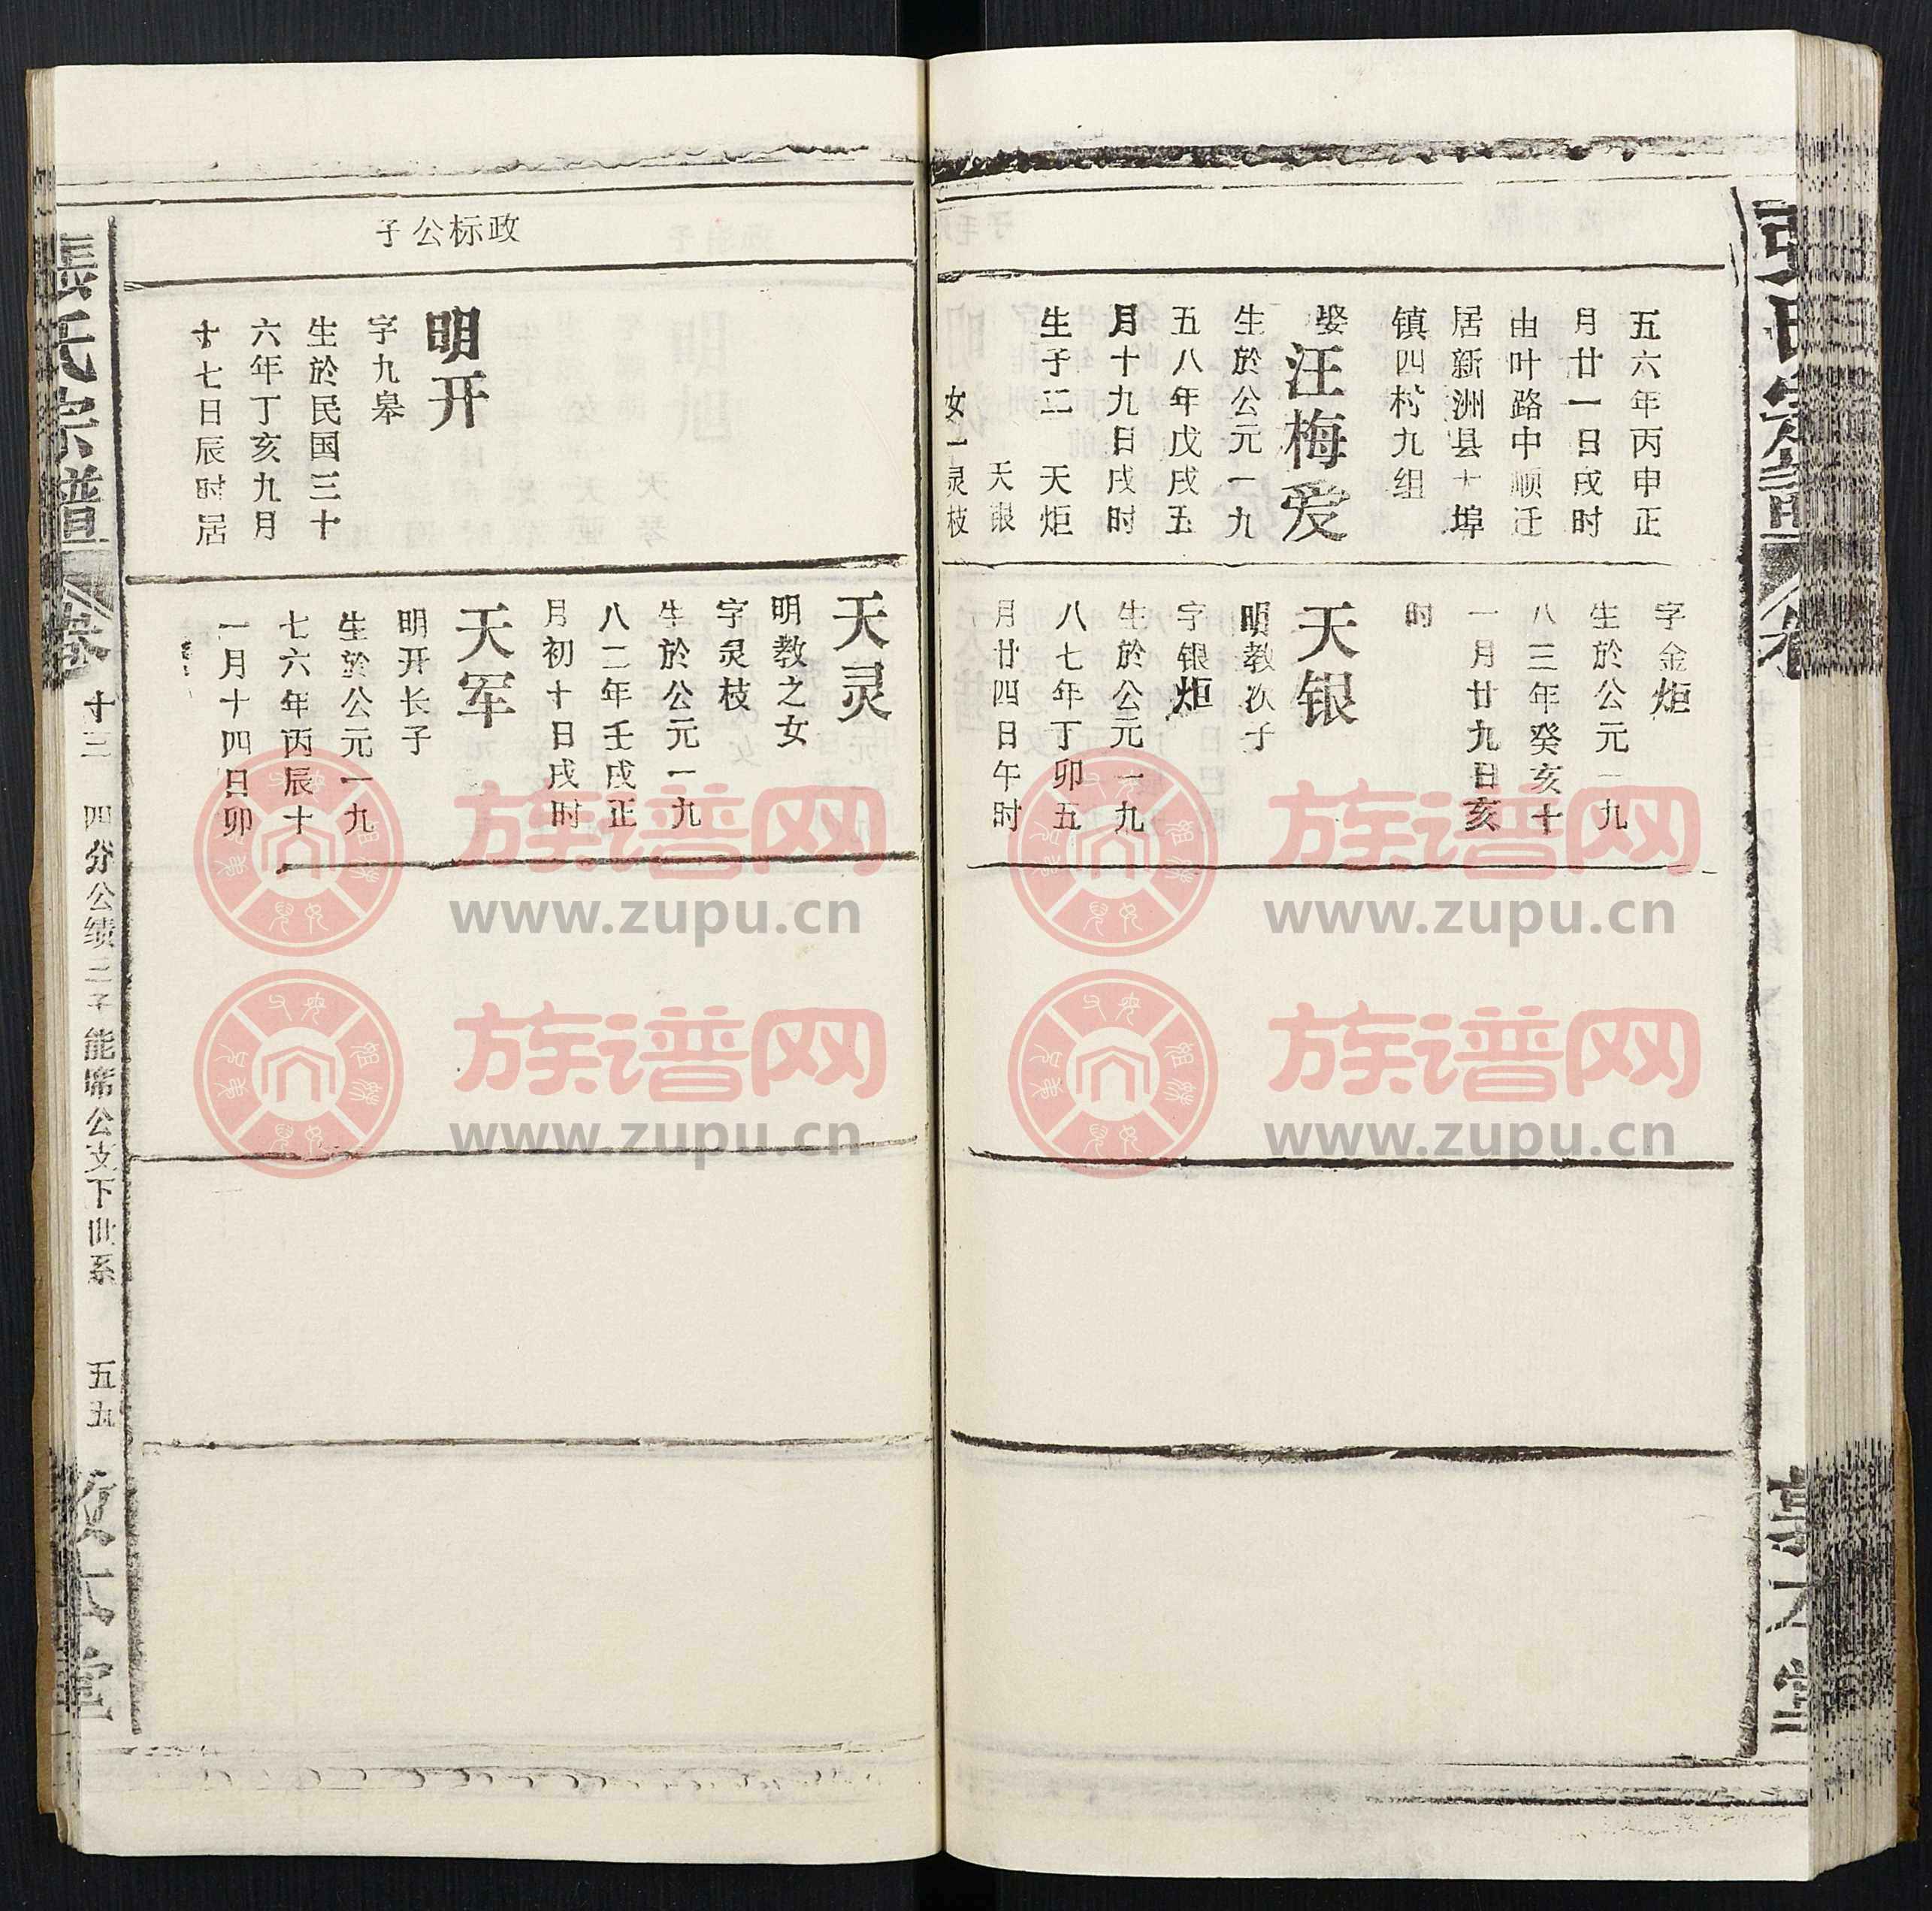 五六年丙申正
月廿一日戌时
由叶路中顺迁
居新洲县十埠
镇四村九组
娶汪梅爱
生於公元一九
五八年戊戌五
月十九日戌时
生子二 天炬
天银
女一灵枝
字金炬
生於公元一九
八三年癸亥十
一月廿九日亥
时
天银
明教次子
字银炬
生於公元一九
八七年丁卯五
月廿四日午时
政标公子
明开
字九皋
生於民国三十
六年丁亥九月
十七日辰时居
天灵
明教之女
字灵枝
生於公元一九
八二年壬戌正
月初十日戌时
天军
明开长子
生於公元一九
七六年丙辰十
一月十四日卯
張氏宗譜 卷十三 四分公绩三子能席公支下世系 五九
族谱网
www.zupu.cn
族谱网
www.zupu.cn
族谱网
www.zupu.cn
族谱网
www.zupu.cn